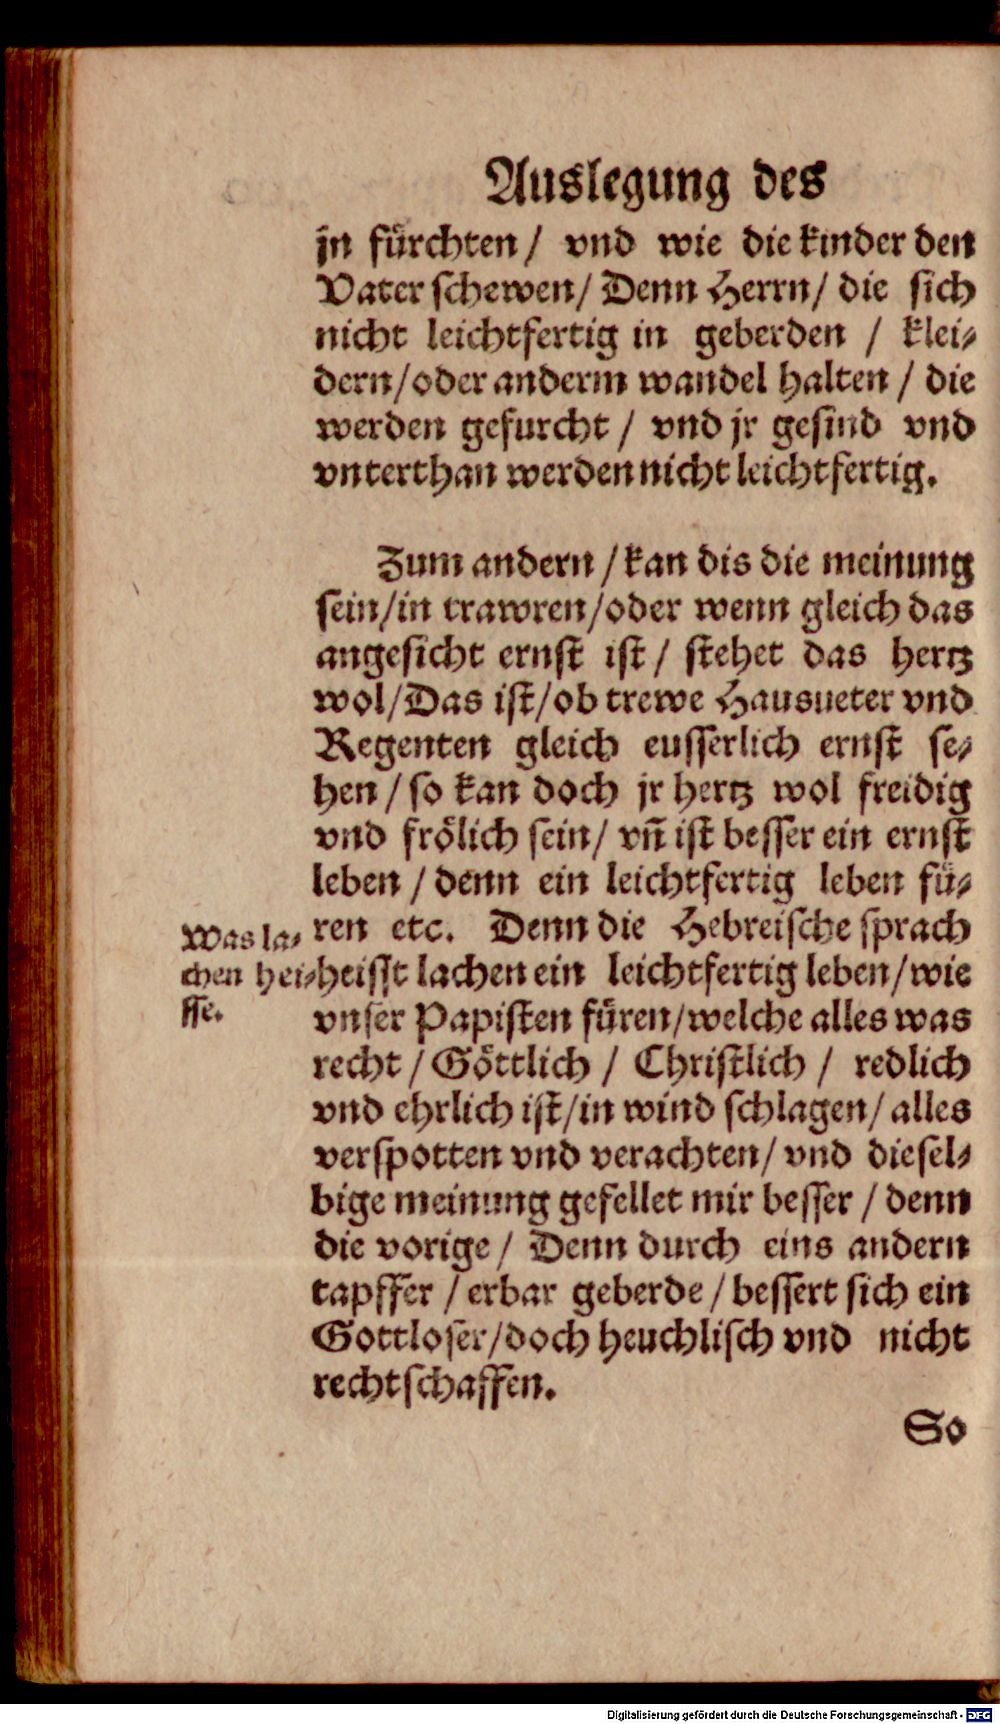 Auslegung des
jn fürchten / vnd wie die kinder den
Vater schewen / Denn Herrn / die sich
nicht leichtfertig in geberden / klei⸗
dern / oder anderm wandel halten / die
werden gefurcht / vnd jr gesind vnd
vnterthan werden nicht leichtfertig.
Zum andern / kan dis die meinung
sein / in trawren / oder wenn gleich das
angesicht ernst ist / stehet das hertz
wol / Das ist / ob trewe Hausueter vnd
Regenten gleich eusserlich ernst se⸗
hen / so kan doch jr hertz wol freidig
vnd frölich sein / vn̄ ist besser ein ernst
leben / denn ein leichtfertig leben fü⸗
ren etc. Denn die Hebreische sprach
heisst lachen ein leichtfertig leben / wie
vnser Papisten füren / welche alles was
recht / Göttlich / Christlich / redlich
vnd ehrlich ist / in wind schlagen / alles
verspotten vnd verachten / vnd diesel⸗
bige meinung gefellet mir besser / denn
die vorige / Denn durch eins andern
tapffer / erbar geberde / bessert sich ein
Gottloser / doch heuchlisch vnd nicht
rechtschaffen.
Was la⸗
chen hei⸗
sse.
So
Digitalisierung gefördert durch die Deutsche Forschungsgemeinschaft - DFG